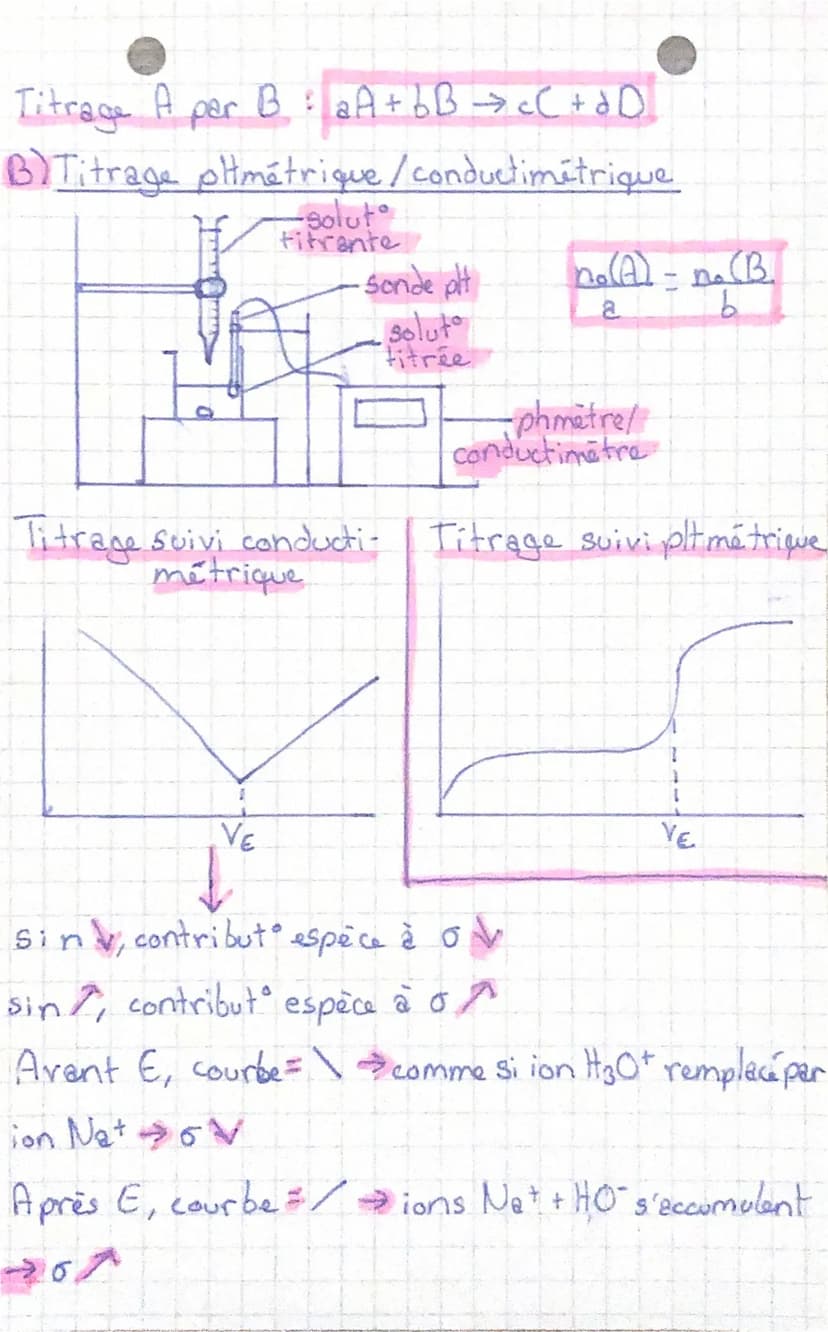 Titrage A par B : aA + bB → cC + dD
B) Titrage pHmétrique / conductimétrique
solut°
titrante
sonde pH
n₀(A) = n₀(B
a b
solut°
titrée
phmètre/
conductimètre
Titrage suivi conducti-
métrique
Titrage suivi pHmétrique
VE
VE
si n ↘, contribut° espèce à σ ↘
si n ↗, contribut° espèce à σ ↗
Avant E, courbe = \ → comme si ion H₃O⁺ remplacé par
ion Na⁺ → σ ↘
Après E, courbe = / → ions Na⁺ + HO⁻ s'accumulent
→ σ ↗